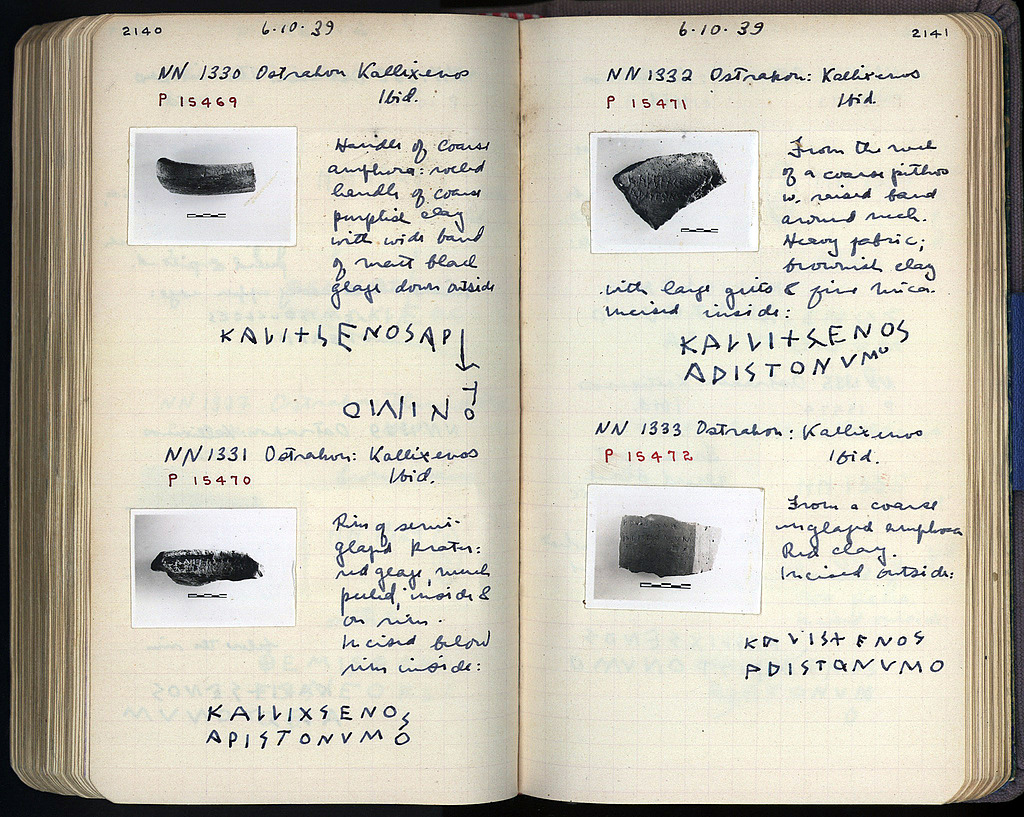 2140
6·10·39
NN 1330 Ostrakon Kallixenos
P 15469 Ibid.
Handle of coarse
amphora: rolled
handle of coarse
purplish clay
with wide band
of matt black
glaze down outside
KALITSENOSAPI
NN 1331 Ostrakon: Kallixenos
P 15470 Ibid.
Rim of semi-
glazed krater:
red glaze, much
peeled, inside &
on rim.
Incised below
rim inside:
KALLIXSENOS
APISTONVMO
6·10·39
2141
NN 1332 Ostrakon: Kallixenos
P 15471 Ibid.
From the neck
of a coarse pithos
w. raised band
around neck.
Heavy fabric;
brownish clay
with large grits & fine mica.
Incised inside:
KALLI+SENOS
APISTONVMO
NN 1333 Ostrakon: Kallixenos
P 15472 Ibid.
From a coarse
unglazed amphora
Red clay.
Incised outside:
KALIS+ENOS
APISTONVMO